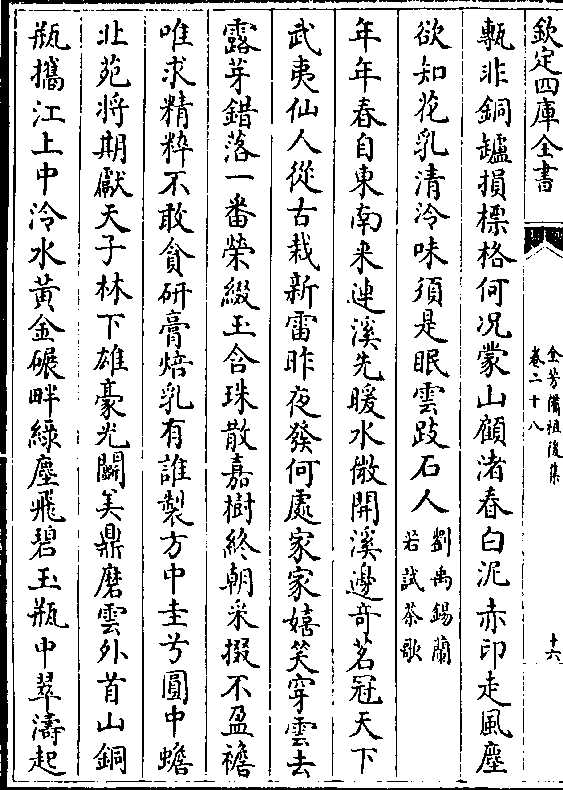 欽定四庫全書
全芳備祖後集
卷二十八
十六
甎非銅鑪損標格何况蒙山顧渚春白泥赤印走風塵
欲知花乳清泠味須是眠雲跂石人
劉禹錫蘭
若試茶歌
年年春自東南来建溪先暖水微開溪邊奇茗冠天下
武夷仙人從古栽新雷昨夜發何處家家嬉笑穿雲去
露芽錯落一番榮綴玉含珠散嘉樹終朝采掇不盈襜
唯求精粹不敢貪研膏焙乳有誰製方中圭兮圓中蟾
北苑将期獻天子林下雄豪先鬭美鼎磨雲外首山銅
瓶攜江上中泠水黃金碾畔綠塵飛碧玉瓶中翠濤起